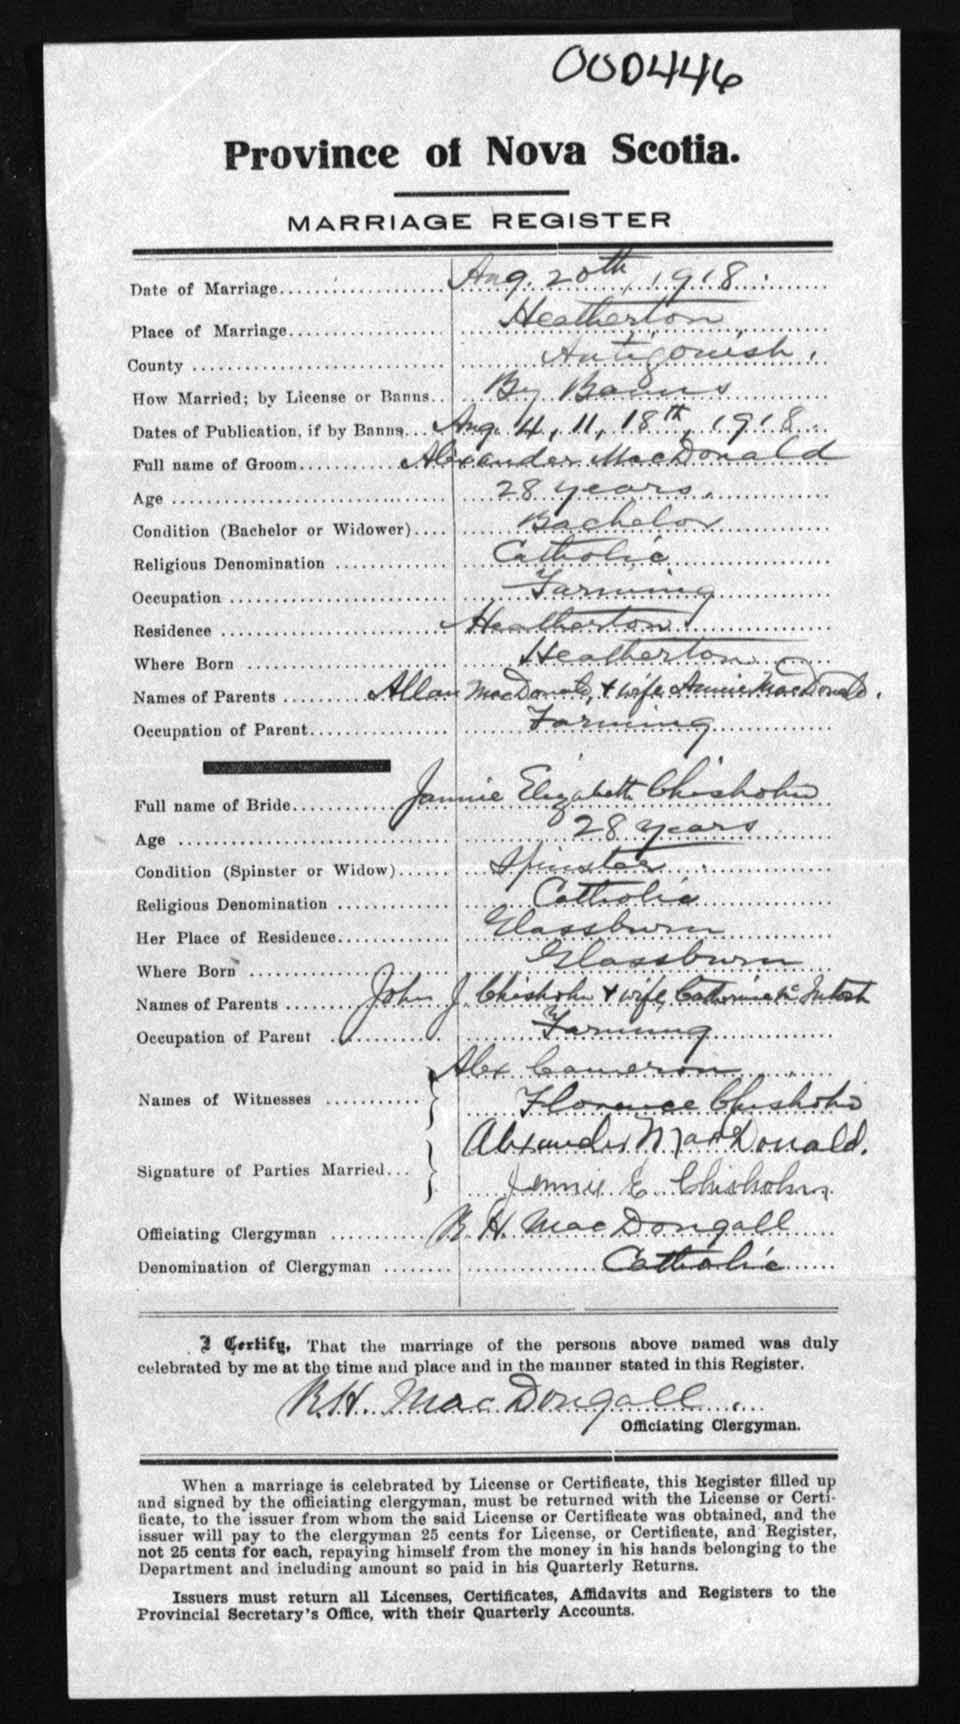 000446
Province of Nova Scotia.
MARRIAGE REGISTER
Date of Marriage Aug. 20th, 1918.
Place of Marriage Heatherton
County Antigonish.
How Married; by License or Banns By Banns
Dates of Publication, if by Banns Aug. 4, 11, 18th, 1918.
Full name of Groom Alexander MacDonald
Age 28 years.
Condition (Bachelor or Widower) Bachelor
Religious Denomination Catholic
Occupation Farming
Residence Heatherton
Where Born Heatherton
Names of Parents Allan MacDonald, & wife Annie MacDonald.
Occupation of Parent Farming
Full name of Bride Jannie Elizabeth Chisholm
Age 28 years
Condition (Spinster or Widow) Spinster
Religious Denomination Catholic
Her Place of Residence Glassburn
Where Born Glassburn
Names of Parents John J. Chisholm & wife, Catherine McIntosh
Occupation of Parent Farming
Names of Witnesses Alex Cameron
Florence Chisholm
Signature of Parties Married Alexander MacDonald.
Jennie E. Chisholm
Officiating Clergyman R. H. MacDougall
Denomination of Clergyman Catholic
I Certify, That the marriage of the persons above named was duly
celebrated by me at the time and place and in the manner stated in this Register.
R.H. MacDougall.
Officiating Clergyman.
When a marriage is celebrated by License or Certificate, this Register filled up
and signed by the officiating clergyman, must be returned with the License or Certi-
ficate, to the issuer from whom the said License or Certificate was obtained, and the
issuer will pay to the clergyman 25 cents for License, or Certificate, and Register,
not 25 cents for each, repaying himself from the money in his hands belonging to the
Department and including amount so paid in his Quarterly Returns.
Issuers must return all Licenses, Certificates, Affidavits and Registers to the
Provincial Secretary's Office, with their Quarterly Accounts.